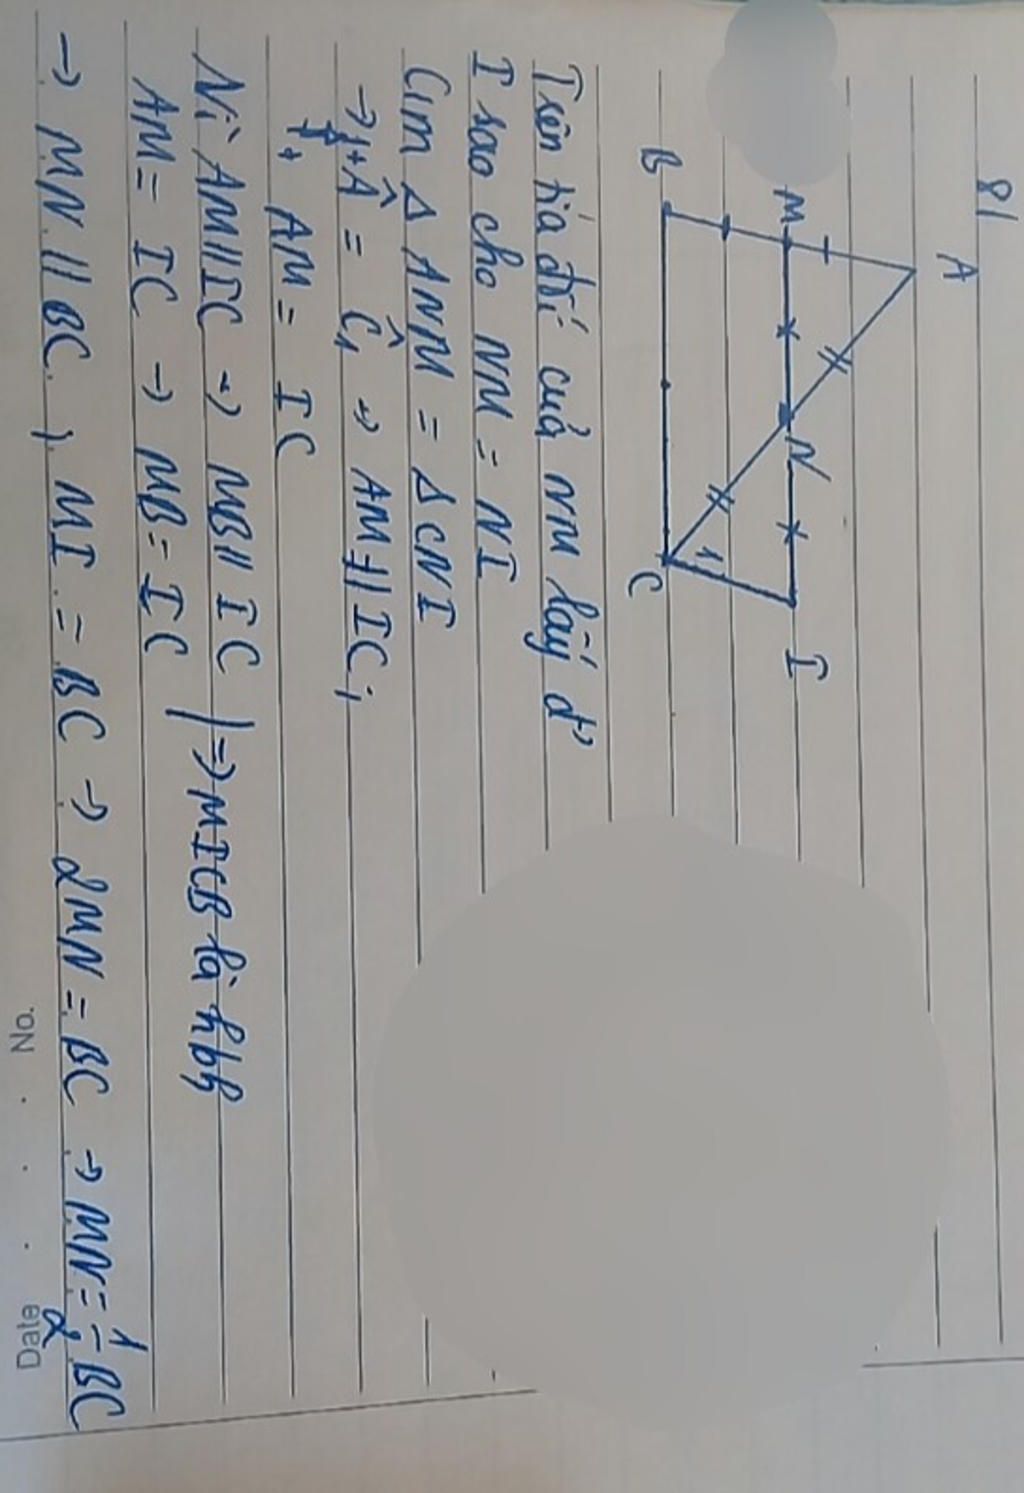 8/
A
M
N
I
B
C
1
Trên tia đối của NM lấy đ'
I sao cho NM = NI
C/m Δ ANM = Δ CNI
→ + Â = Ĉ₁ → AM // IC ;
+ AM = IC
Vì AM // IC → MB // IC | ⇒ MICB là hbh
AM = IC → MB = IC
→ MN // BC ; MI = BC → 2MN = BC → MN = 1/2 BC
No.
Date